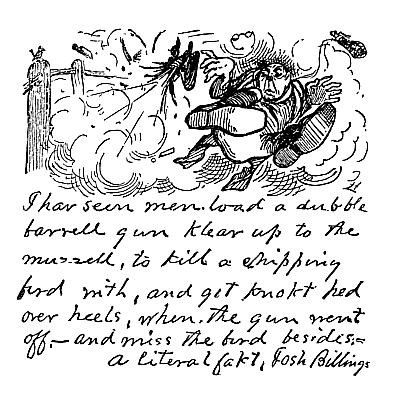 I hav seen men load a dubble
barrell gun klear up to the
muzzell, to kill a chipping
bird with, and git knokt hed
over heels, when the gun went
off.— and miss the bird besides.=
a literal fakt, Josh Billings